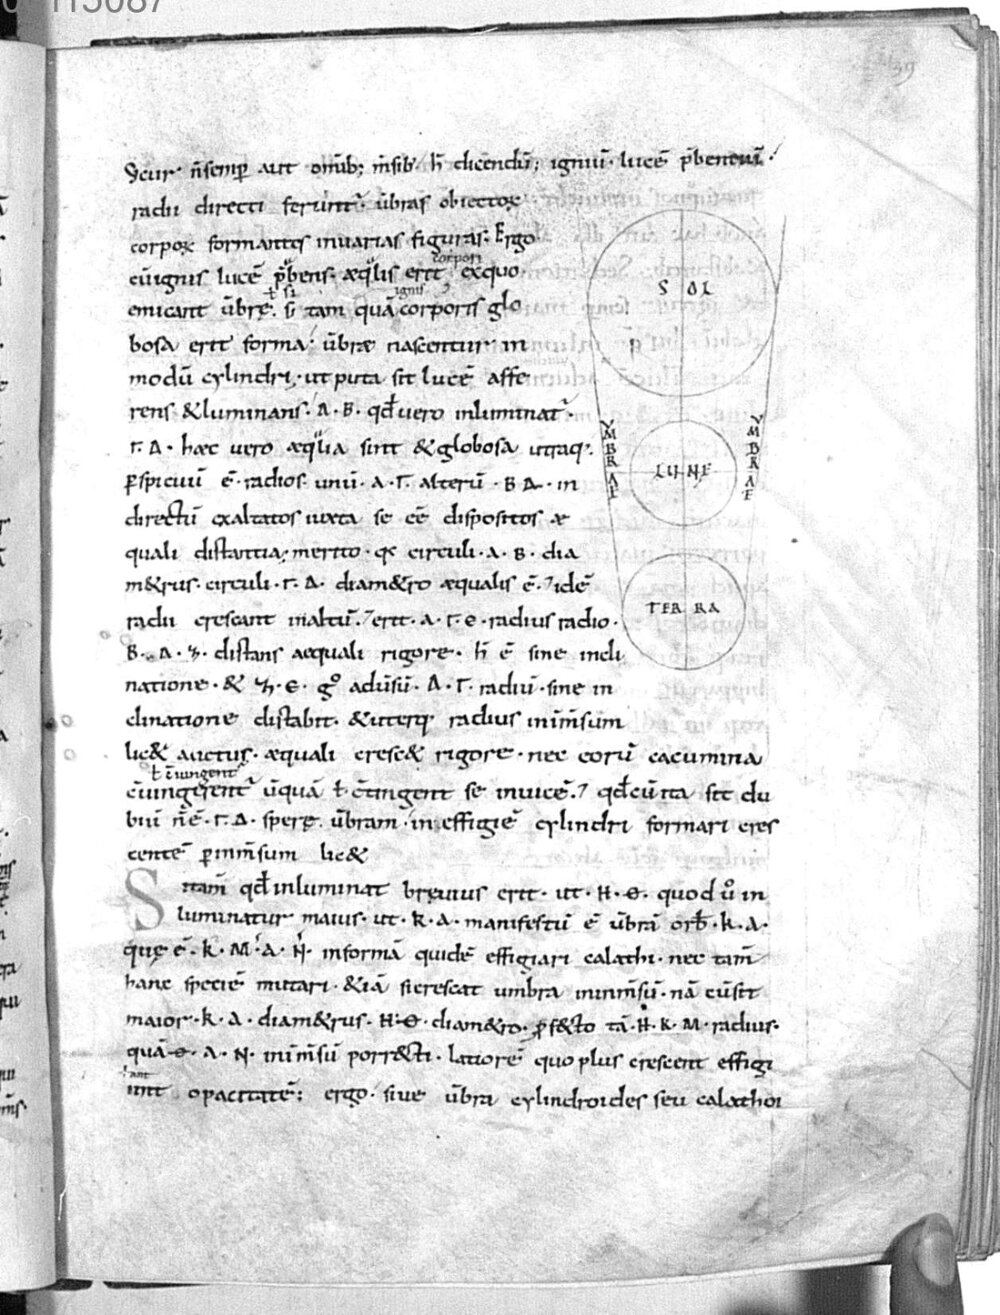 115087
39
Sed cur n̄ semp̄ aut omīb; m̄sib' h̄ dicendū; igniū· lucē p̄bentiū·
radii directi ferunt᷑· ūbras obiectoꝝ
corpoꝝ formantes in varias figuras· Ergo
corpori
cū ignis lucē p̄bens· æqͣlis erit exquo
ł si ignis
emicant ūbrę· s; tam quā corporis glo
bosa erit forma· ūbræ nascentur in
modū cylindri· ut puta sit lucē affe
rens & luminans· A· B· qd̄ vero inluminat᷑·
Γ· Δ· hæc vero æqͣlia sint & globosa utraq·
ꝑspicuū ē· radios unū· A· Γ· alterū· B Δ· in
directū exaltatos iuxta se eē dispositos æ
quali distantia· merito· qs circuli· A· B· dia
m&rus· circuli· Γ· Δ· diam&ro æqualis ē· ⁊ idē
radii crescant in altū· ⁊ erit· A· Γ· E· radius radio·
B· Δ· distans aequali rigore· h̄ ē sine incli
natione· & adūsū· Δ· Γ· radiū· sine in
clinatione distabit· & uterq· radius in īm̄sum
lic& auctus· æquali cresc& rigore· nec eorū cacumina
ł c̄iungent᷑
c̄iungerent᷑ ūquā ł c̄tingent se inuicē· ⁊ qd̄ cū ita sit du
biū n̄ ē· Γ· Δ· sperę· ūbram· in effigiē cylindri formari cres
centē ꝑ inm̄sum lic&
Si tam̄ qd̄ inluminat breuius erit· ut· H· Θ· quod ů in
luminatur maius· ut· K· Λ· manifestū ē ūbrā orb̄· K· Λ·
quę ē· K· M· Λ· N· in formā quidē effigiari calathi· nec tam̄
hanc speciē mutari· & iā si crescat umbra in inm̄sū· nā cū sit
maior· K· Λ· diam&rus· H· Θ· diam&ro· ꝓf&to tā· H· K· M· radius·
quā· Θ· Λ· N· in īm̄sū porr&ti· latiorē quo plus crescent effigi
ant
unt opacitatē; ergo· siue ūbra cylindroides seu calathoi
SOL
VMBRAE
LUNE
VMBRAE
TERRA